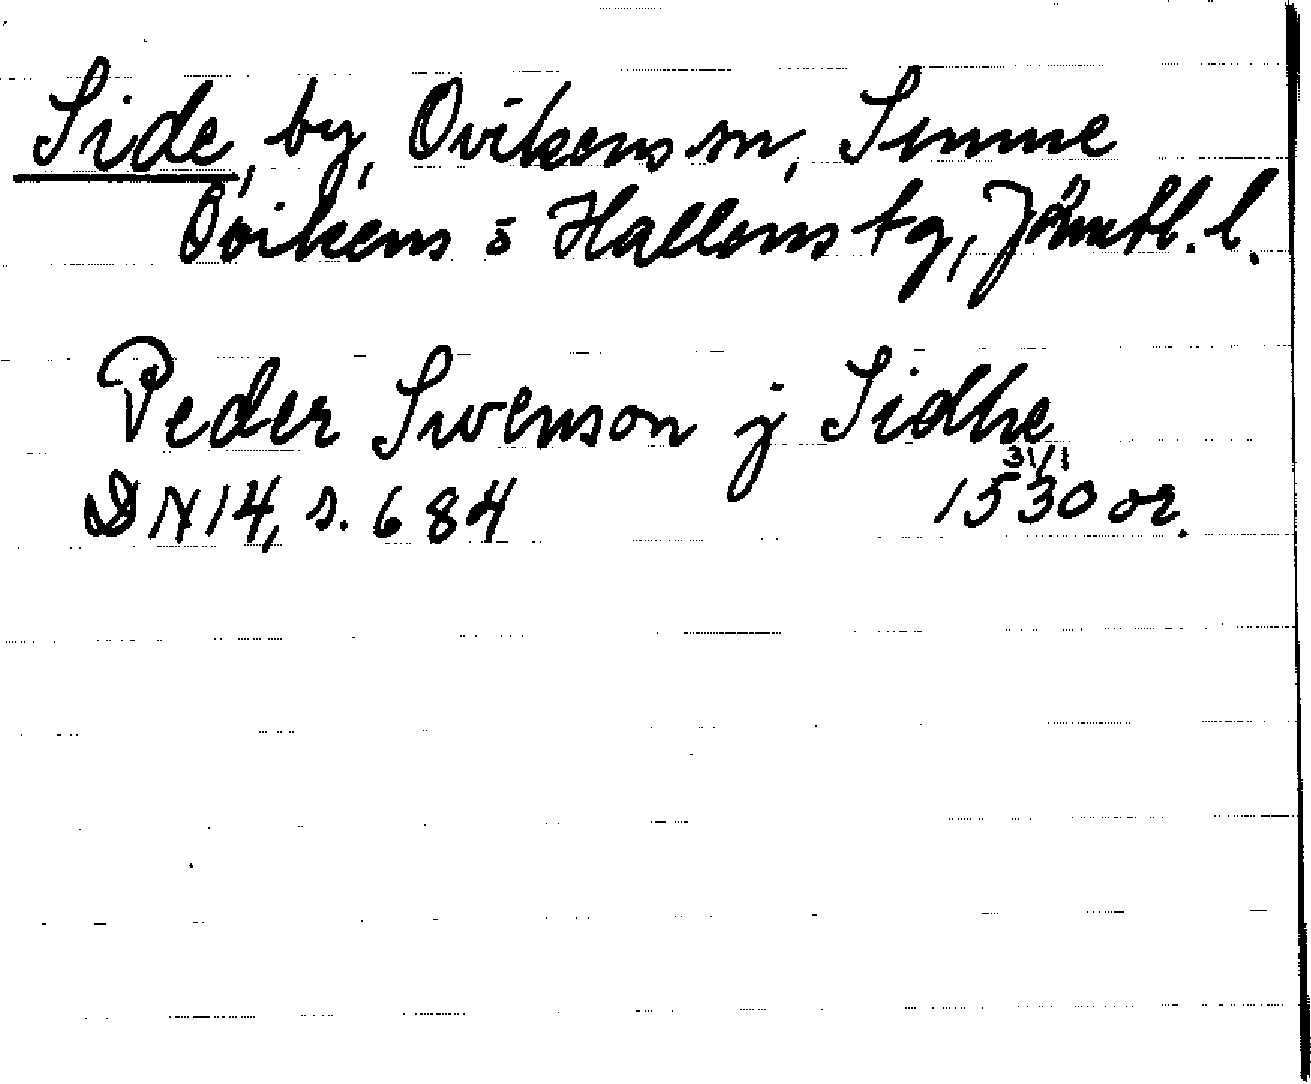 Side, by, Ovikens sn, Sunne
Ovikens o Hallens tg, Jämtl. l.
Peder Swenson j Sidhe
31/1
DN 14, s. 684 1530 or.